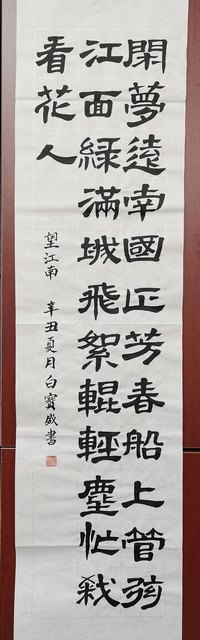 閑夢遠南國正芳春船上管弦
江面緑滿城飛絮輥輕塵忙殺
看花人
望江南 辛丑夏月白寶盛書